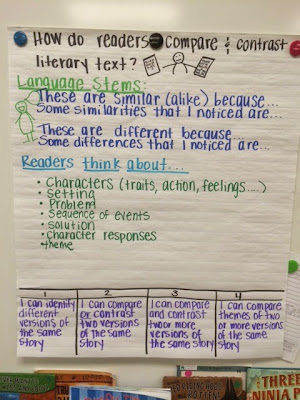 How do readers compare & contrast
literary text?
Language Stems:
These are similar (alike) because...
Some similarities that I noticed are...
These are different because...
Some differences that I noticed are...
Readers think about...
• Characters (traits, action, feelings....)
• Setting
• Problem
• Sequence of events
• solution
• character responses
• theme
1
I can identify
different
versions of
the same
story
2
I can compare
or contrast
two versions
of the same
story
3
I can compare
and contrast
two or more
versions of
the same story
4
I can compare
themes of two
or more versions
of the same
story
THREE
NINJA